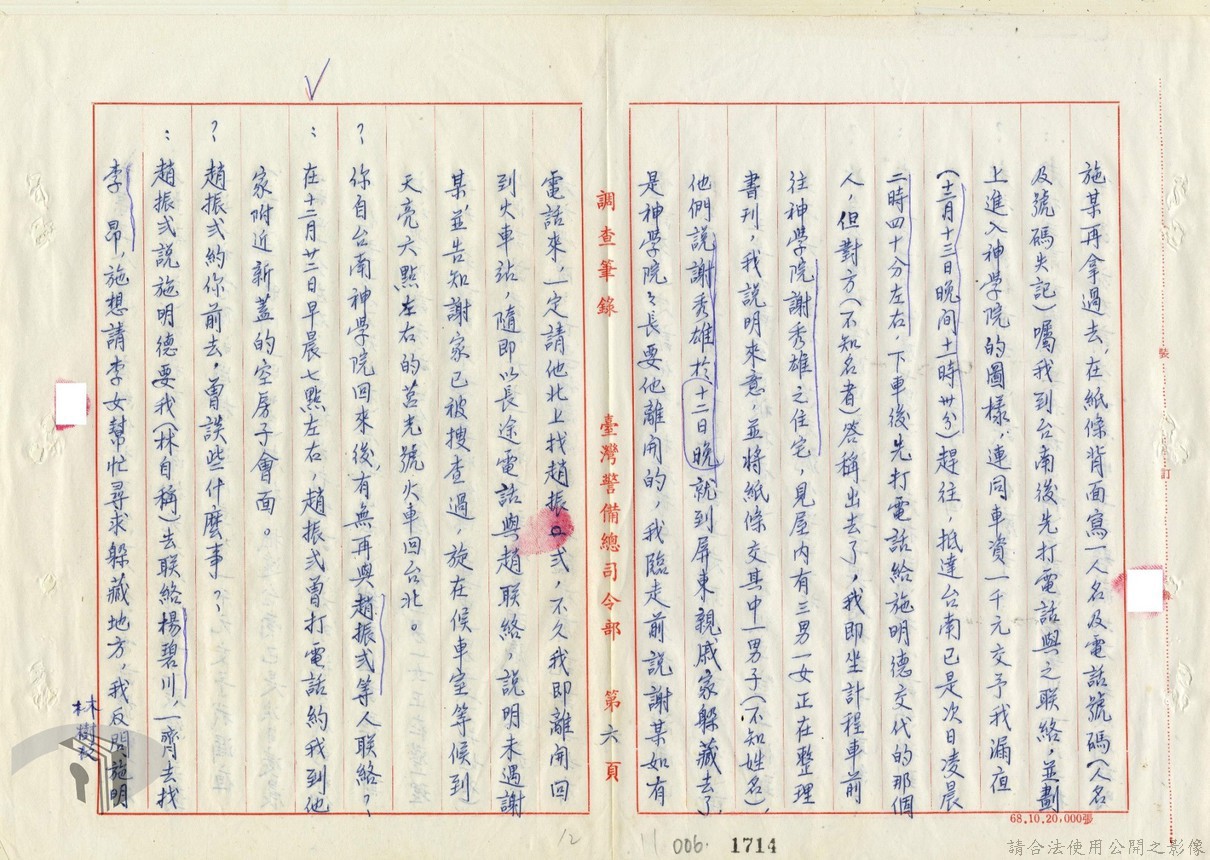 施某再拿過去,在紙條背面寫一人名及電話號碼(人名
及號碼失記)囑我到台南後先打電話與之聯絡,並劃
上進入神學院的圖樣,連同車資一千元交予我漏夜
(十二月十三日晚間十一時卅分)趕往,抵達台南已是次日凌晨
二時四十分左右,下車後先打電話給施明德交代的那個
人,但對方(不知名者)答稱出去了,我即坐計程車前
往神學院謝秀雄之住宅,見屋內有三男一女正在整理
書刊,我說明來意,並將紙條交其中一男子(不知姓名),
他們說謝秀雄於十二日晚就到屏東親戚家躲藏去了,
是神學院々長要他離開的,我臨走前說謝某如有
調查筆錄 臺灣警備總司令部 第六頁
電話來,一定請他北上找趙振弍,不久我即離開回
到火車站,隨即以長途電話與趙聯絡,說明未遇謝
某並告知謝家已被搜查過,旋在候車室等候到
天亮六點左右的莒光號火車回台北。
?你自台南神學院回來後,有無再與趙振弍等人聯絡?
:在十二月廿二日早晨七點左右,趙振弍曾打電話約我到他
家附近新蓋的空房子會面。
?趙振弍約你前去,曾談些什麼事?
:趙振弍說施明德要我(林自稱)去聯絡楊碧川,一齊去找
李昂,施想請李女幫忙尋求躲藏地方,我反問施明
林樹枝
裝
訂
線
68.10.20,000張
12
11
006.
1714
請合法使用公開之影像